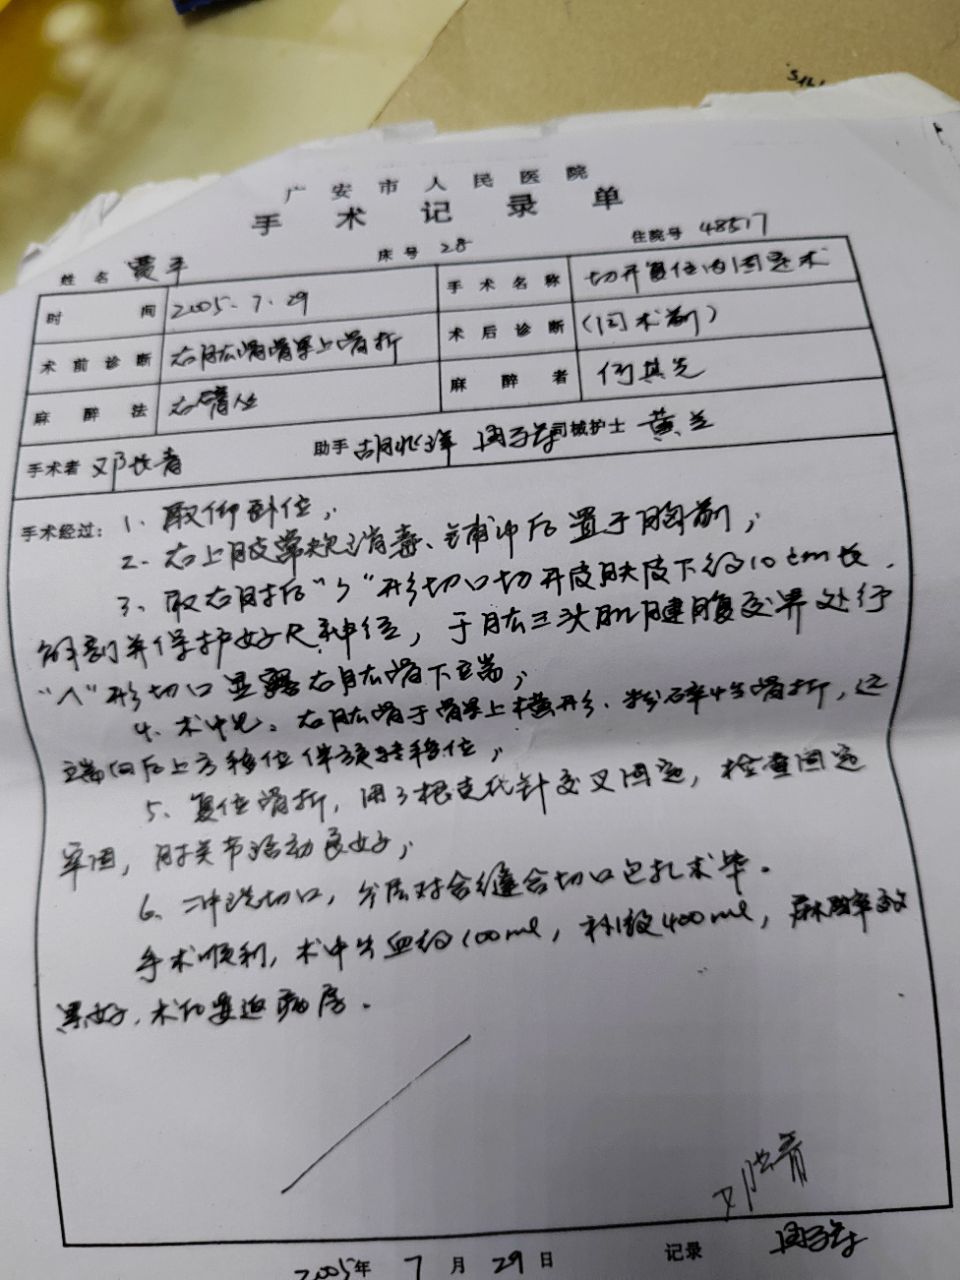 广安市人民医院
手术记录单
姓名 霞平 床号 28 住院号 48517
时间 2005.7.29 手术名称 切开复位内固定术
术前诊断 右肱骨髁上骨折 术后诊断 (同术前)
麻醉法 右臂丛 麻醉者 何其先
手术者 邓长青 助手 胡 司械护士 黄兰
手术经过: 1、取仰卧位;
2、右上肢常规消毒、铺巾后置于胸前;
3、取右肘后“S”形切口切开皮肤皮下约10cm长,
解剖并保护好尺神经,于肱三头肌腱腹交界处行
“∧”形切口显露右肱骨下端;
4、术中见:右肱骨于髁上横形、粉碎性骨折,远
端向后上方移位伴旋转移位;
5、复位骨折,用3根克氏针交叉固定,检查固定
牢固,肘关节活动良好;
6、冲洗切口,分层对合缝合切口包扎术毕。
手术顺利,术中失血约100ml,补液400ml,麻醉效
果好,术后安返病房。
邓长青
2005年 7月 29日 记录